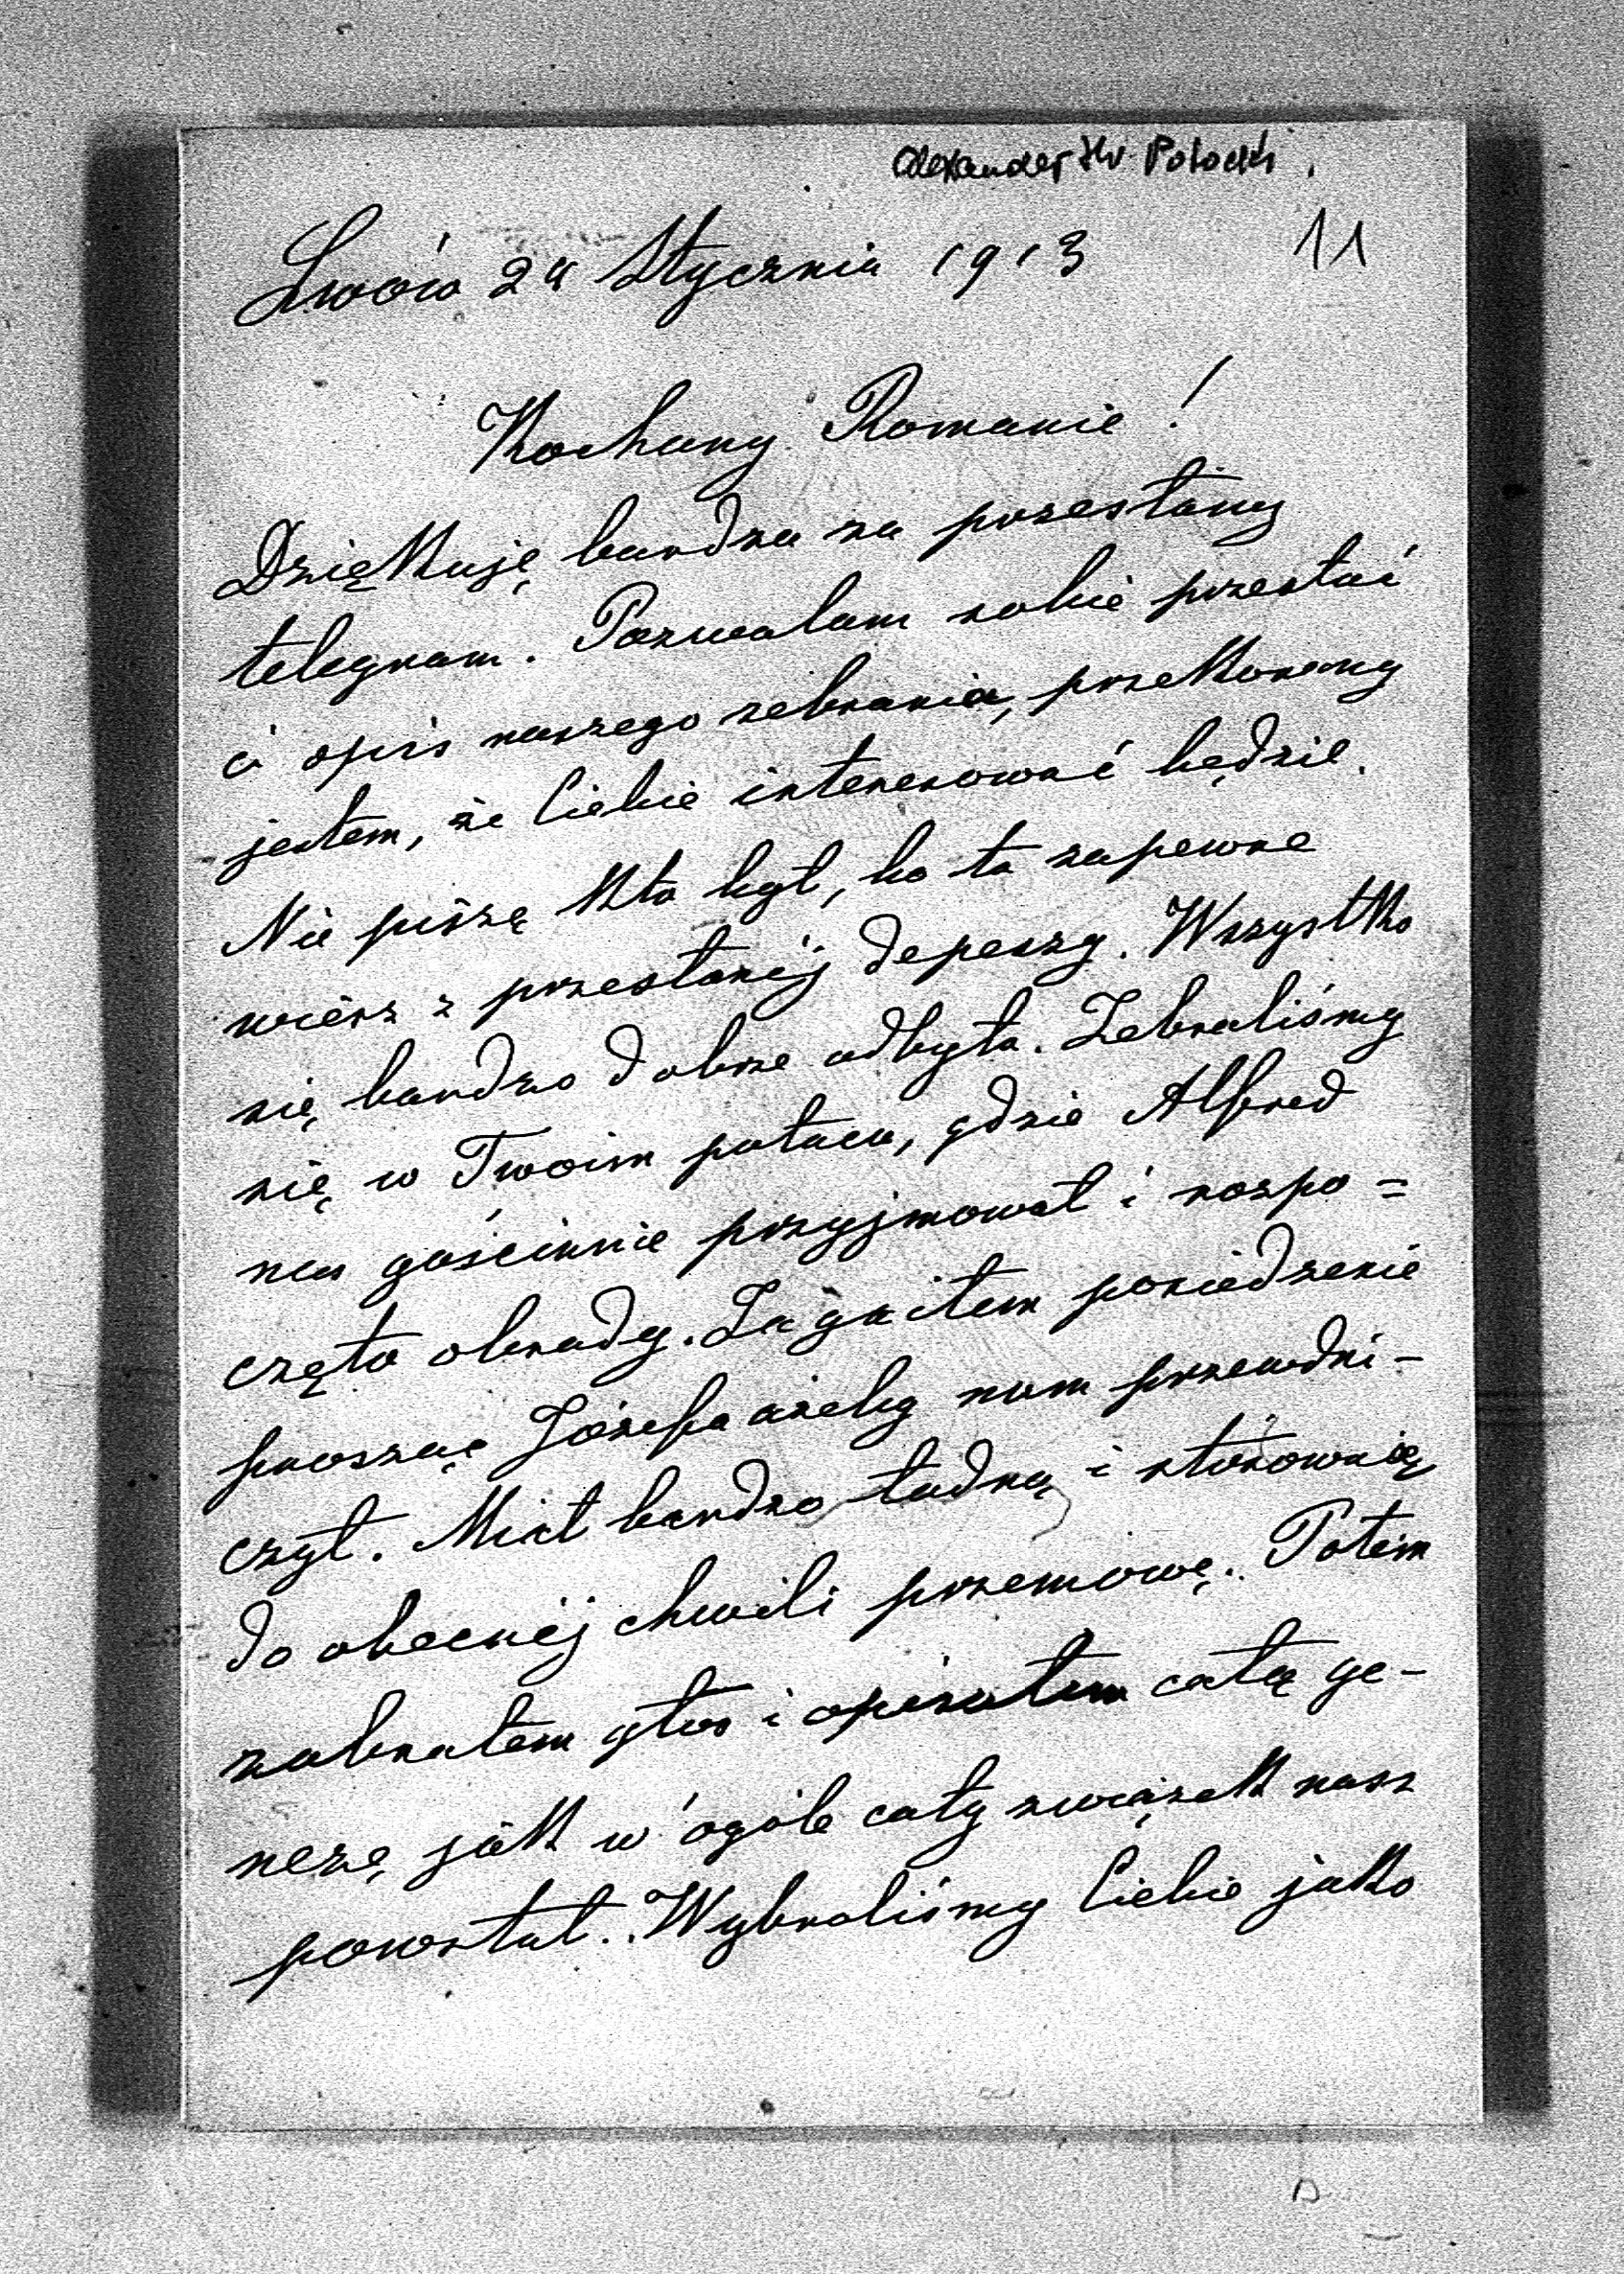 Alexander Hr. Potocki.
11
Lwów 24 Stycznia 1913
Kochany Romanie!
Dziękuję bardzo za przesłany
telegram. Pozwalam sobie przesłać
ci opis naszego zebrania, przekonany
jestem, że Ciebie interesować będzie.
Nie piszę kto był, bo to zapewne
wiesz z przesłanéj depeszy. Wszystko
się bardzo dobrze odbyło. Zebraliśmy
się w Twoim pałacu, gdzie Alfred
nas gościnnie przyjmował i rozpo=
częto obrady. Zagaiłem posiedzenie
prosząc Józefa ażeby nam przewodni-
czył. Miał bardzo ładną i stósowną
do obecnéj chwili przemowę. Potem
zabrałem głos i opisałem całą ge-
nezę jak w ogóle cały związek nasz
powstał. Wybraliśmy Ciebie jako